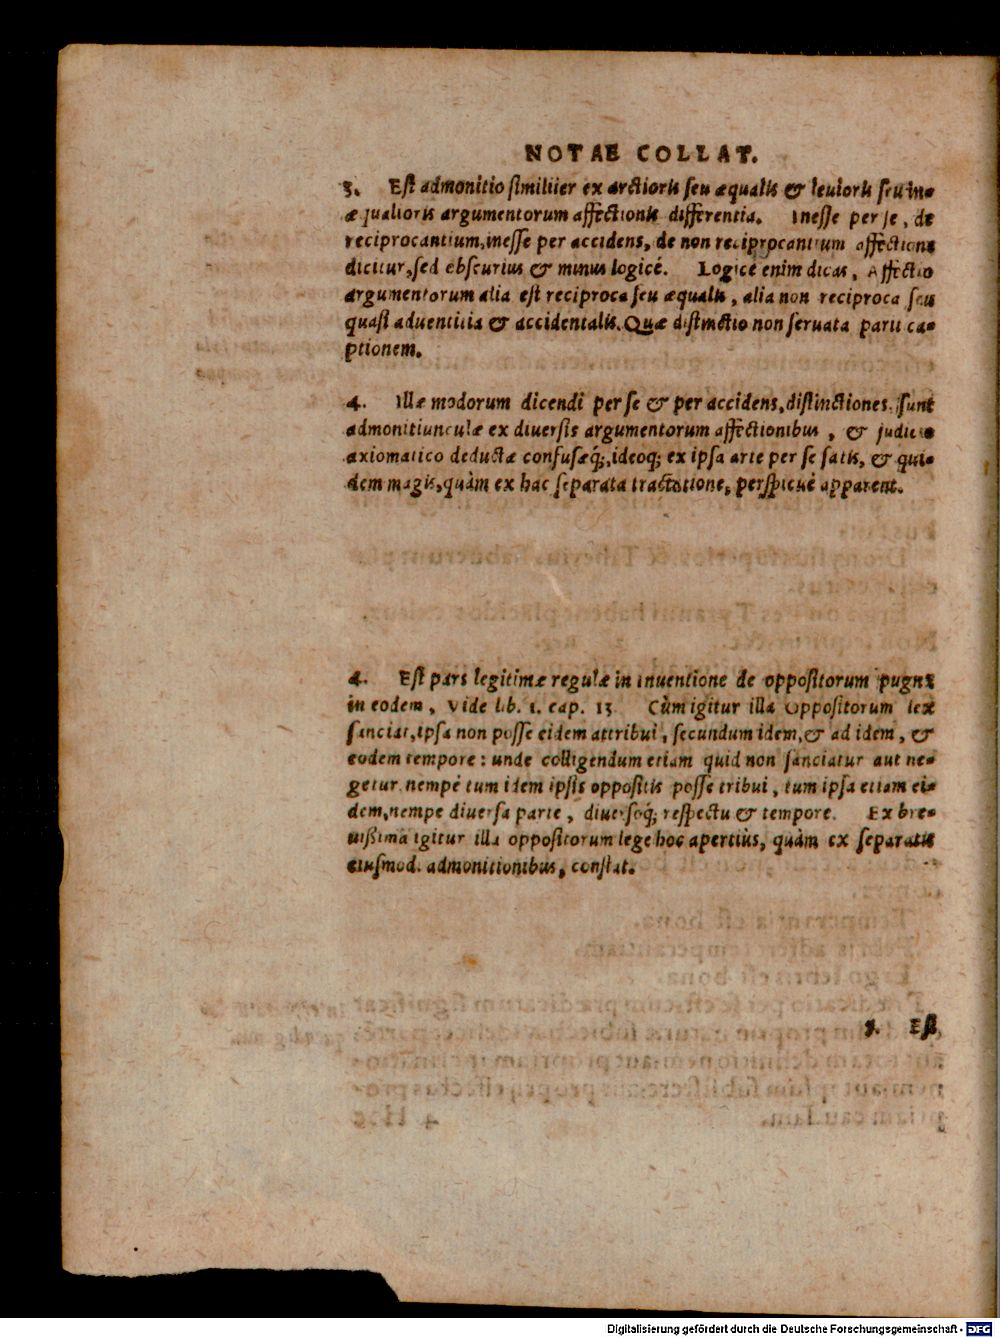 NOTAE COLLAT.
3. Est admonitio similiter ex arctioris seu æqualis & leuioris seu in-
æqualioris argumentorum affectionis differentia. Inesse per se, de
reciprocantium, inesse per accidens, de non reciprocantium affectione
dicitur, sed obscurius & minus logicè. Logicè enim dicas, Affectio
argumentorum alia est reciproca seu æqualis, alia non reciproca seu
quasi aduentitia & accidentalis. Quæ distinctio non seruata parit ca-
ptionem.
4. Illæ modorum dicendi per se & per accidens, distinctiones, sunt
admonitiunculæ ex diuersis argumentorum affectionibus, & judicio
axiomatico deductæ confusæq;, ideoq; ex ipsa arte per se satis, & qui-
dem magis, quàm ex hac separata tractatione, perspicuè apparent.
4. Est pars legitimæ regulæ in inuentione de oppositorum pugna
in eodem, vide lib. 1. cap. 13 Cùm igitur illa Oppositorum lex
sanciat, ipsa non posse eidem attribui, secundum idem, & ad idem, &
eodem tempore: unde colligendum etiam quid non sanciatur aut ne-
getur, nempè tum idem ipsis oppositis posse tribui, tum ipsa etiam ei-
dem, nempe diuersa parte, diuersoq́; respectu & tempore. Ex bre-
uißima igitur illa oppositorum lege hoc apertiùs, quàm ex separatis
eiusmod. admonitionibus, constat.
5. Est
Digitalisierung gefördert durch die Deutsche Forschungsgemeinschaft - DFG